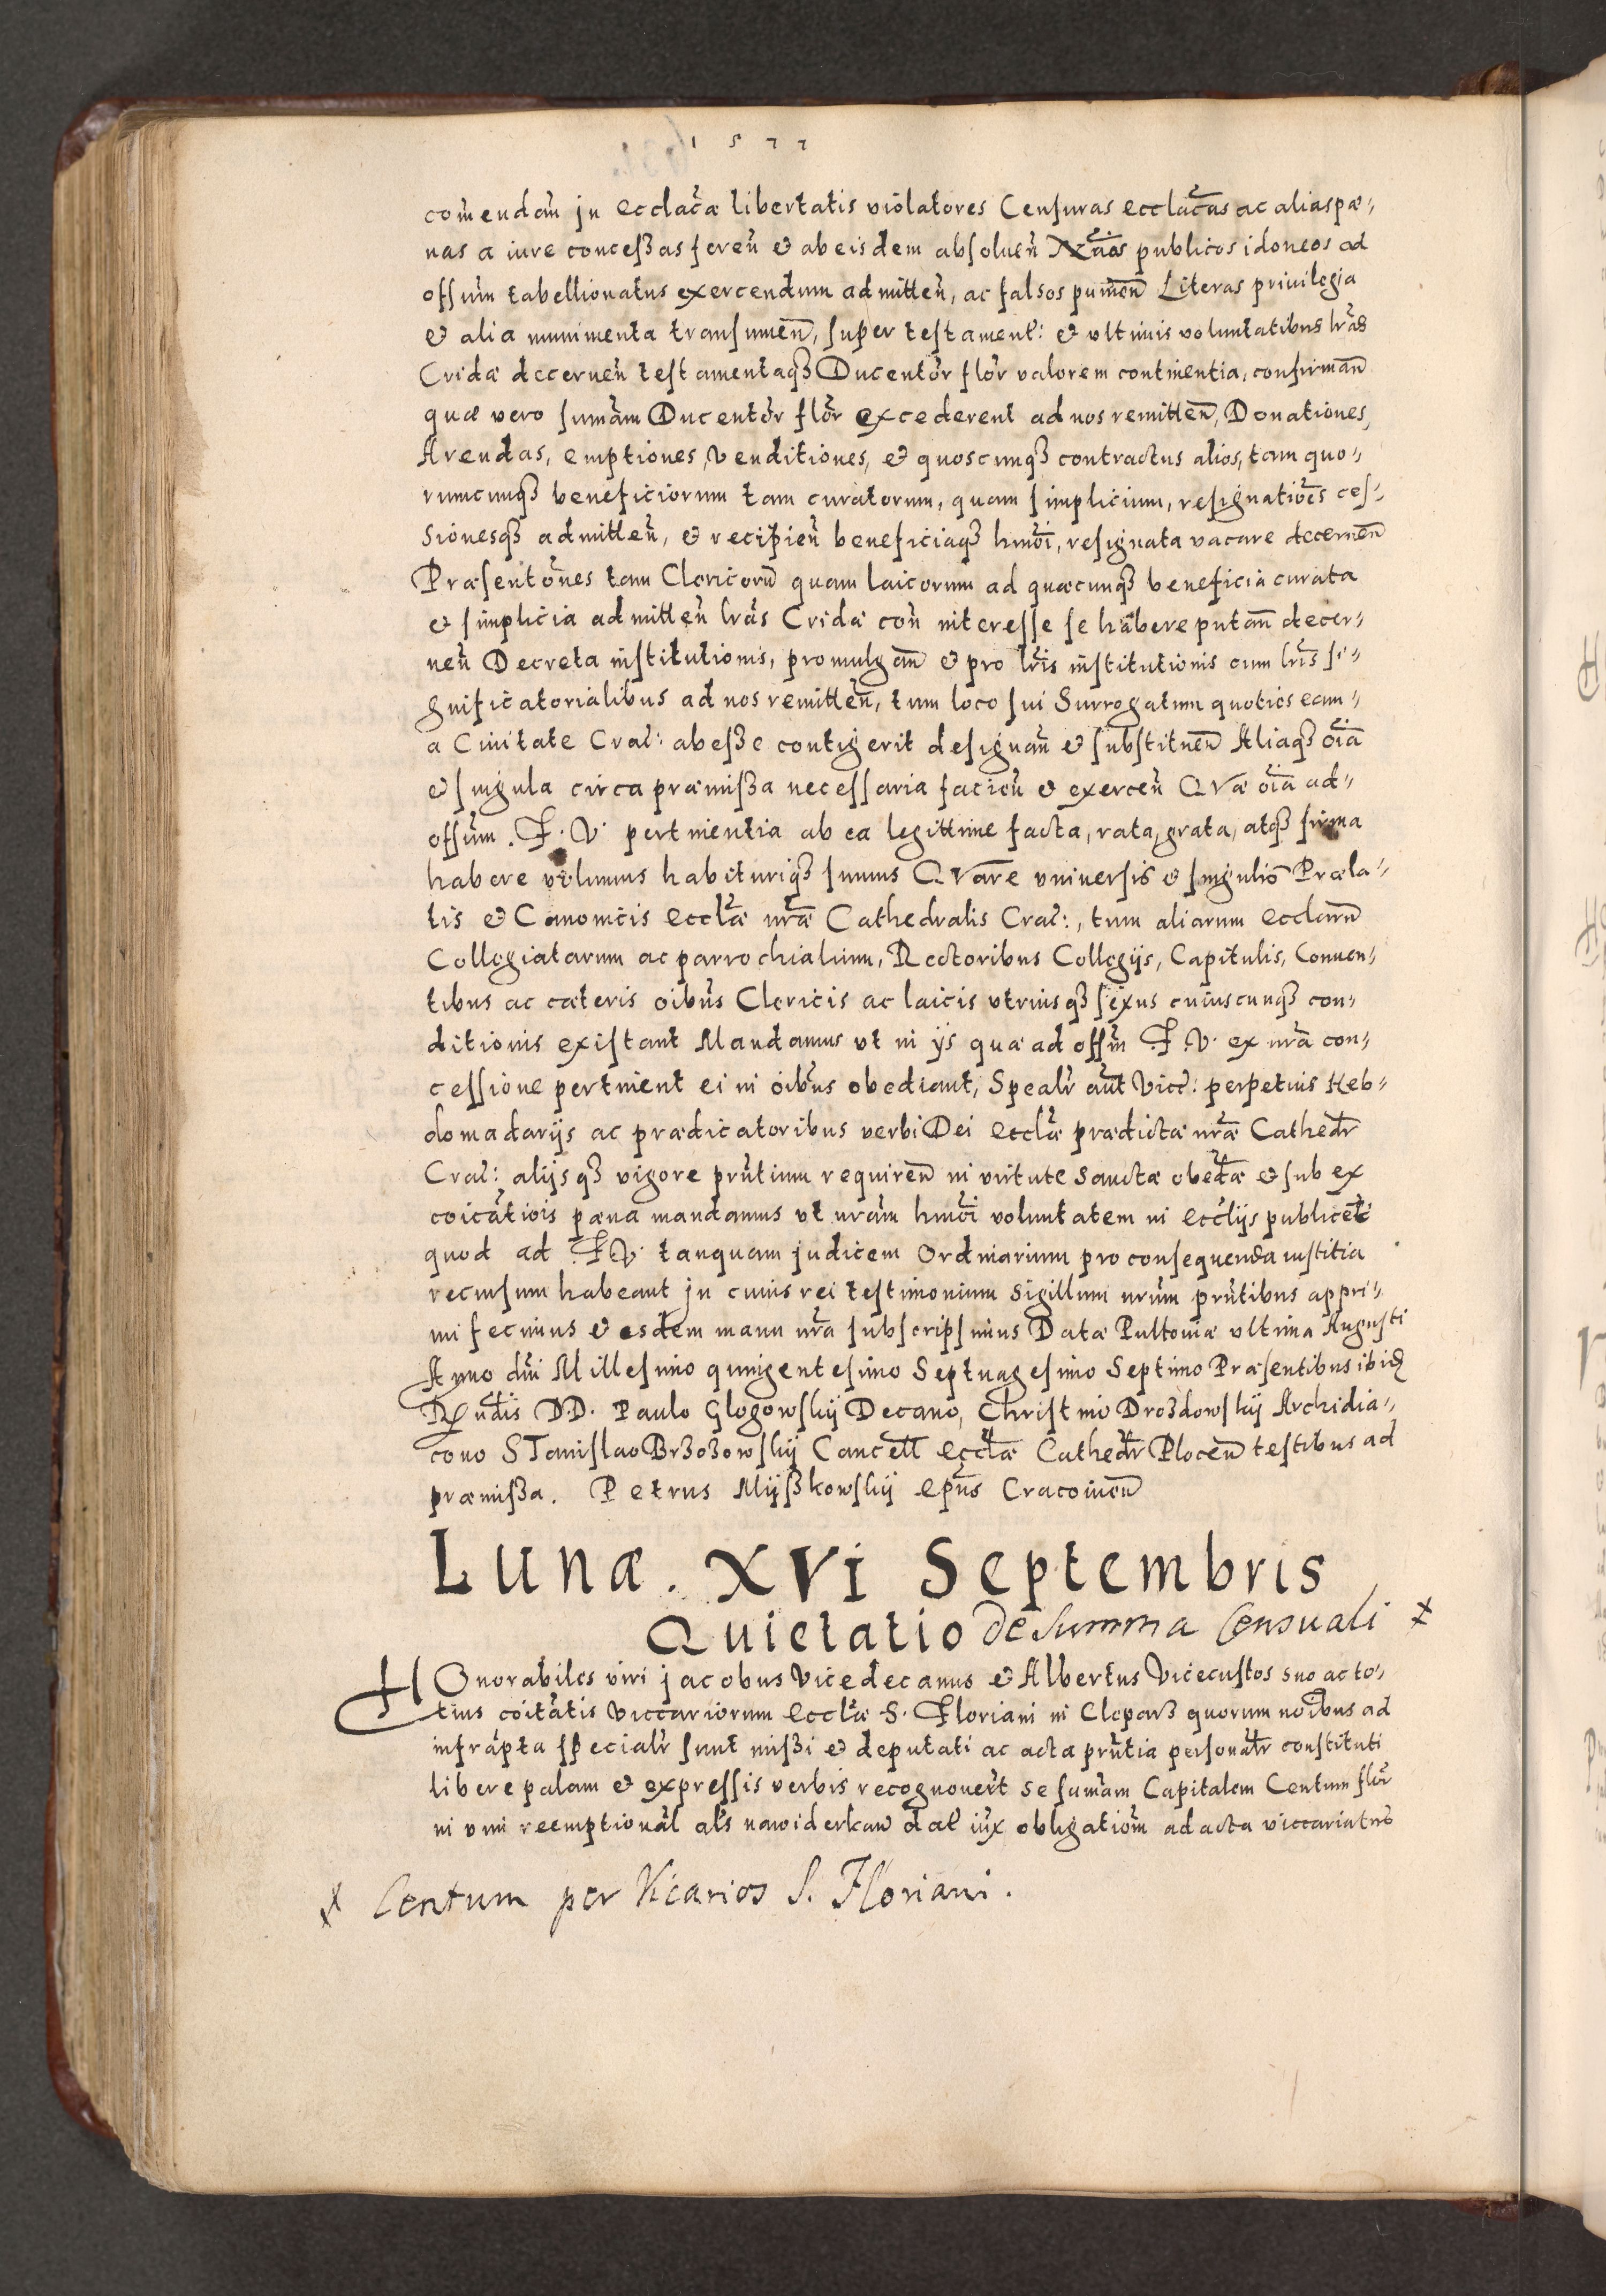 1577
com̃endam̃ jn eccla͠cæ libertatis violatores Censuras eccla͠cas ac alias pæ„
nas a iure conceßas feren̄ & ab eisdem absoluen̄ Nͣ͠rios publicos idoneos ad
offum̃ tabellionatus exercendum admitten̄, ac falsos punien̄ Literas priuilegia
& alia munimenta transumen̄, super testament: & vltimis voluntatibus lr̃as
Cridæ decernen̄ testamentaqȝ Ducentor̃ flor̃ valorem continentia, confirman̄
quæ vero sum̃am Ducentor̃ flor̃ excederent ad nos remitten̄, Donationes,
Arendas, emptiones, venditiones, & quoscunqȝ contractus alios, tam quo„
rumcunqȝ beneficiorum tam curatorum, quam simplicium, resignatio͠es ces„
sionesqȝ admitten̄, & recipien̄ beneficiaqȝ hmo͠i, resignata vacare decernen̄
Præsento͠nes tam Clericorũ quam laicorum ad quæcunqȝ beneficia curata
& simplicia admitten̄ lr̃as Cridæ con̄ interesse se habere putan̄ decer„
nen̄ Decreta institutionis, promulgan̄ & pro lr̃is institutionis cum lr̃is si„
gnificatorialibus ad nos remitten̄, tum loco sui Surrogatum quoties eam„
a Ciuitate Crac̃: abeße contigerit designan̄ & substituen̄ Aliaqȝ oı͠a
& singula circa præmißa necessaria facien̄ & exercen̄ QVæ oı͠a ad„
offum̃ .F. V. pertinentia ab ea legittime facta, rata, grata, atqȝ firma
habere volumus habituriqȝ sumus QVare vniuersis & singulis Præla„
tis & Canonicis Eccl̃æ nr̃æ Cathedralis Crac̃:, tum aliarum ecclarũ
Collegiatarum ac parrochialium, Rectoribus Collegijs, Capitulis, Conuen„
tibus ac cæteris oibũs Clericis ac laicis vtriusqȝ sexus cuiuscunqȝ con„
ditionis existant Mandamus vt in ijs quæ ad offm̃ F. V. ex nr̃a con„
cessione pertinent ei in oibũs obediant, Spealr̃ aũt Vicc̃: perpetuis Heb„
domadarijs ac prædicatoribus verbi Dei Eccl̃æ prædictæ nr̃æ Cathedr̃
Crac̃: alijsqȝ vigore prñtium requiren̄ in virtute Sanctæ obed̃æ & sub ex
coicãtiois pæna mandamus vt nr̃am hmo͠i voluntatem in eccl̃ijs publicet̃
quod ad F. V. tanquam judicem Ordinarium pro consequenda iustitia
recursum habeant jn cuius rei testimonium Sigillum nr̃um prñtibus appri„
mi fecimus & easdem manu nr̃a subscripsimus Datæ Pultouiæ vltima Augusti
Anno dñi Millesimo quingentesimo Septuagesimo Septimo Præsentibus ibiđ
R͠undis DD. Paulo Glogowskÿ Decano, Christino Drozdowskÿ Archidia„
cono STanislao Brzozowskÿ Cancell̃ eccl̃æ Cathedr̃ Plocen̄ testibus ad
præmißa. Petrus Mÿßkowskÿ Ep̃us Cracouien̄
Lunæ . XVi Septembris
Quietatio de Summa Censuali ҂
HOnorabiles viri jacobus Vicedecanus & Albertus Vicecustos suo ac to„
tius coitãtis Viccariorum Eccl̃æ S. Floriani in Clepars quorum noı͠bus ad
infrãpta specialr̃ sunt mißi & deputati ac acta prñtia personalr̃ constituti
libere palam & expressis verbis recognouer̃t se sum̃am Capitalem Centum flor̃
in vim reemptional̃ als̃ nawiderkaw dat̃ iux̃ obligatiom̃ ad acta viccariatus
҂ Centum per Vicarios S. Floriani.